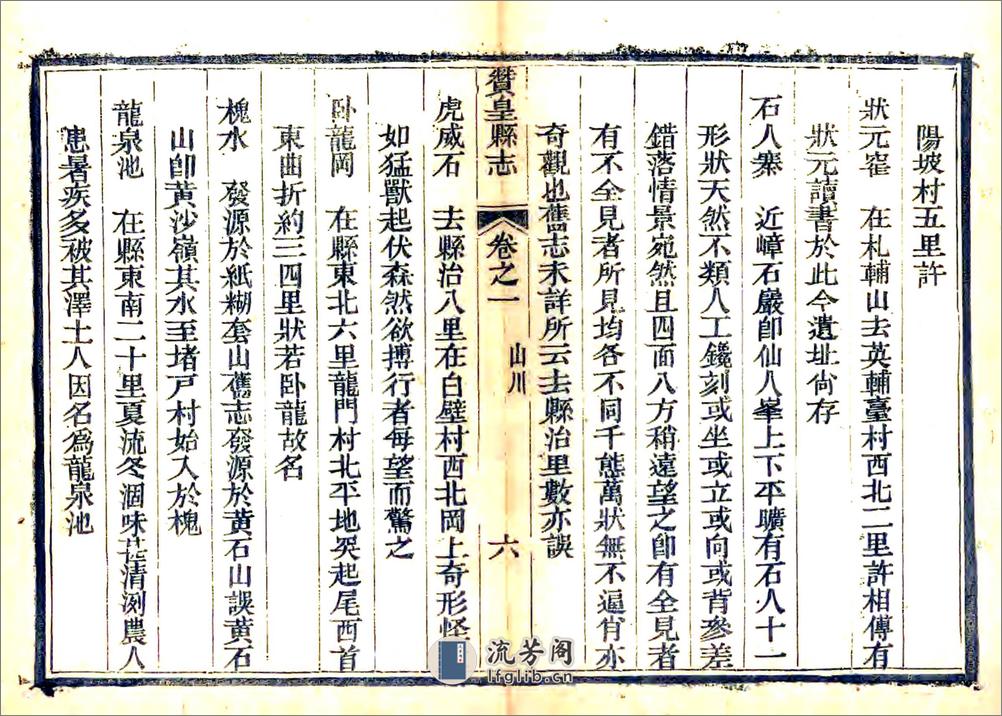 陽坡村五里許
狀元窑　在札輔山去英輔臺村西北二里許相傳有
狀元讀書於此今遺址尙存
石人寨　近嶂石巖卽仙人峯上下平曠有石人十一
形狀天然不類人工鑱刻或坐或立或向或背參差
錯落情景宛然且四面八方稍遠望之卽有全見者
有不全見者所見均各不同千態萬狀無不逼肖亦
奇觀也舊志未詳所云去縣治里數亦誤
贊皇縣志　卷之一　山川　六
虎威石　去縣治八里在白壁村西北岡上奇形怪
如猛獸起伏森然欲搏行者每望而驚之
卧龍岡　在縣東北六里龍門村北平地突起尾西首
東曲折約三四里狀若卧龍故名
槐水　發源於紙糊套山舊志發源於黃石山誤黃石
山卽黃沙嶺其水至堵戸村始入於槐
龍泉池　在縣東南二十里夏流冬涸味甚清洌農人
患暑疾多被其澤土人因名爲龍泉池
流芳阁
lfglib.cn